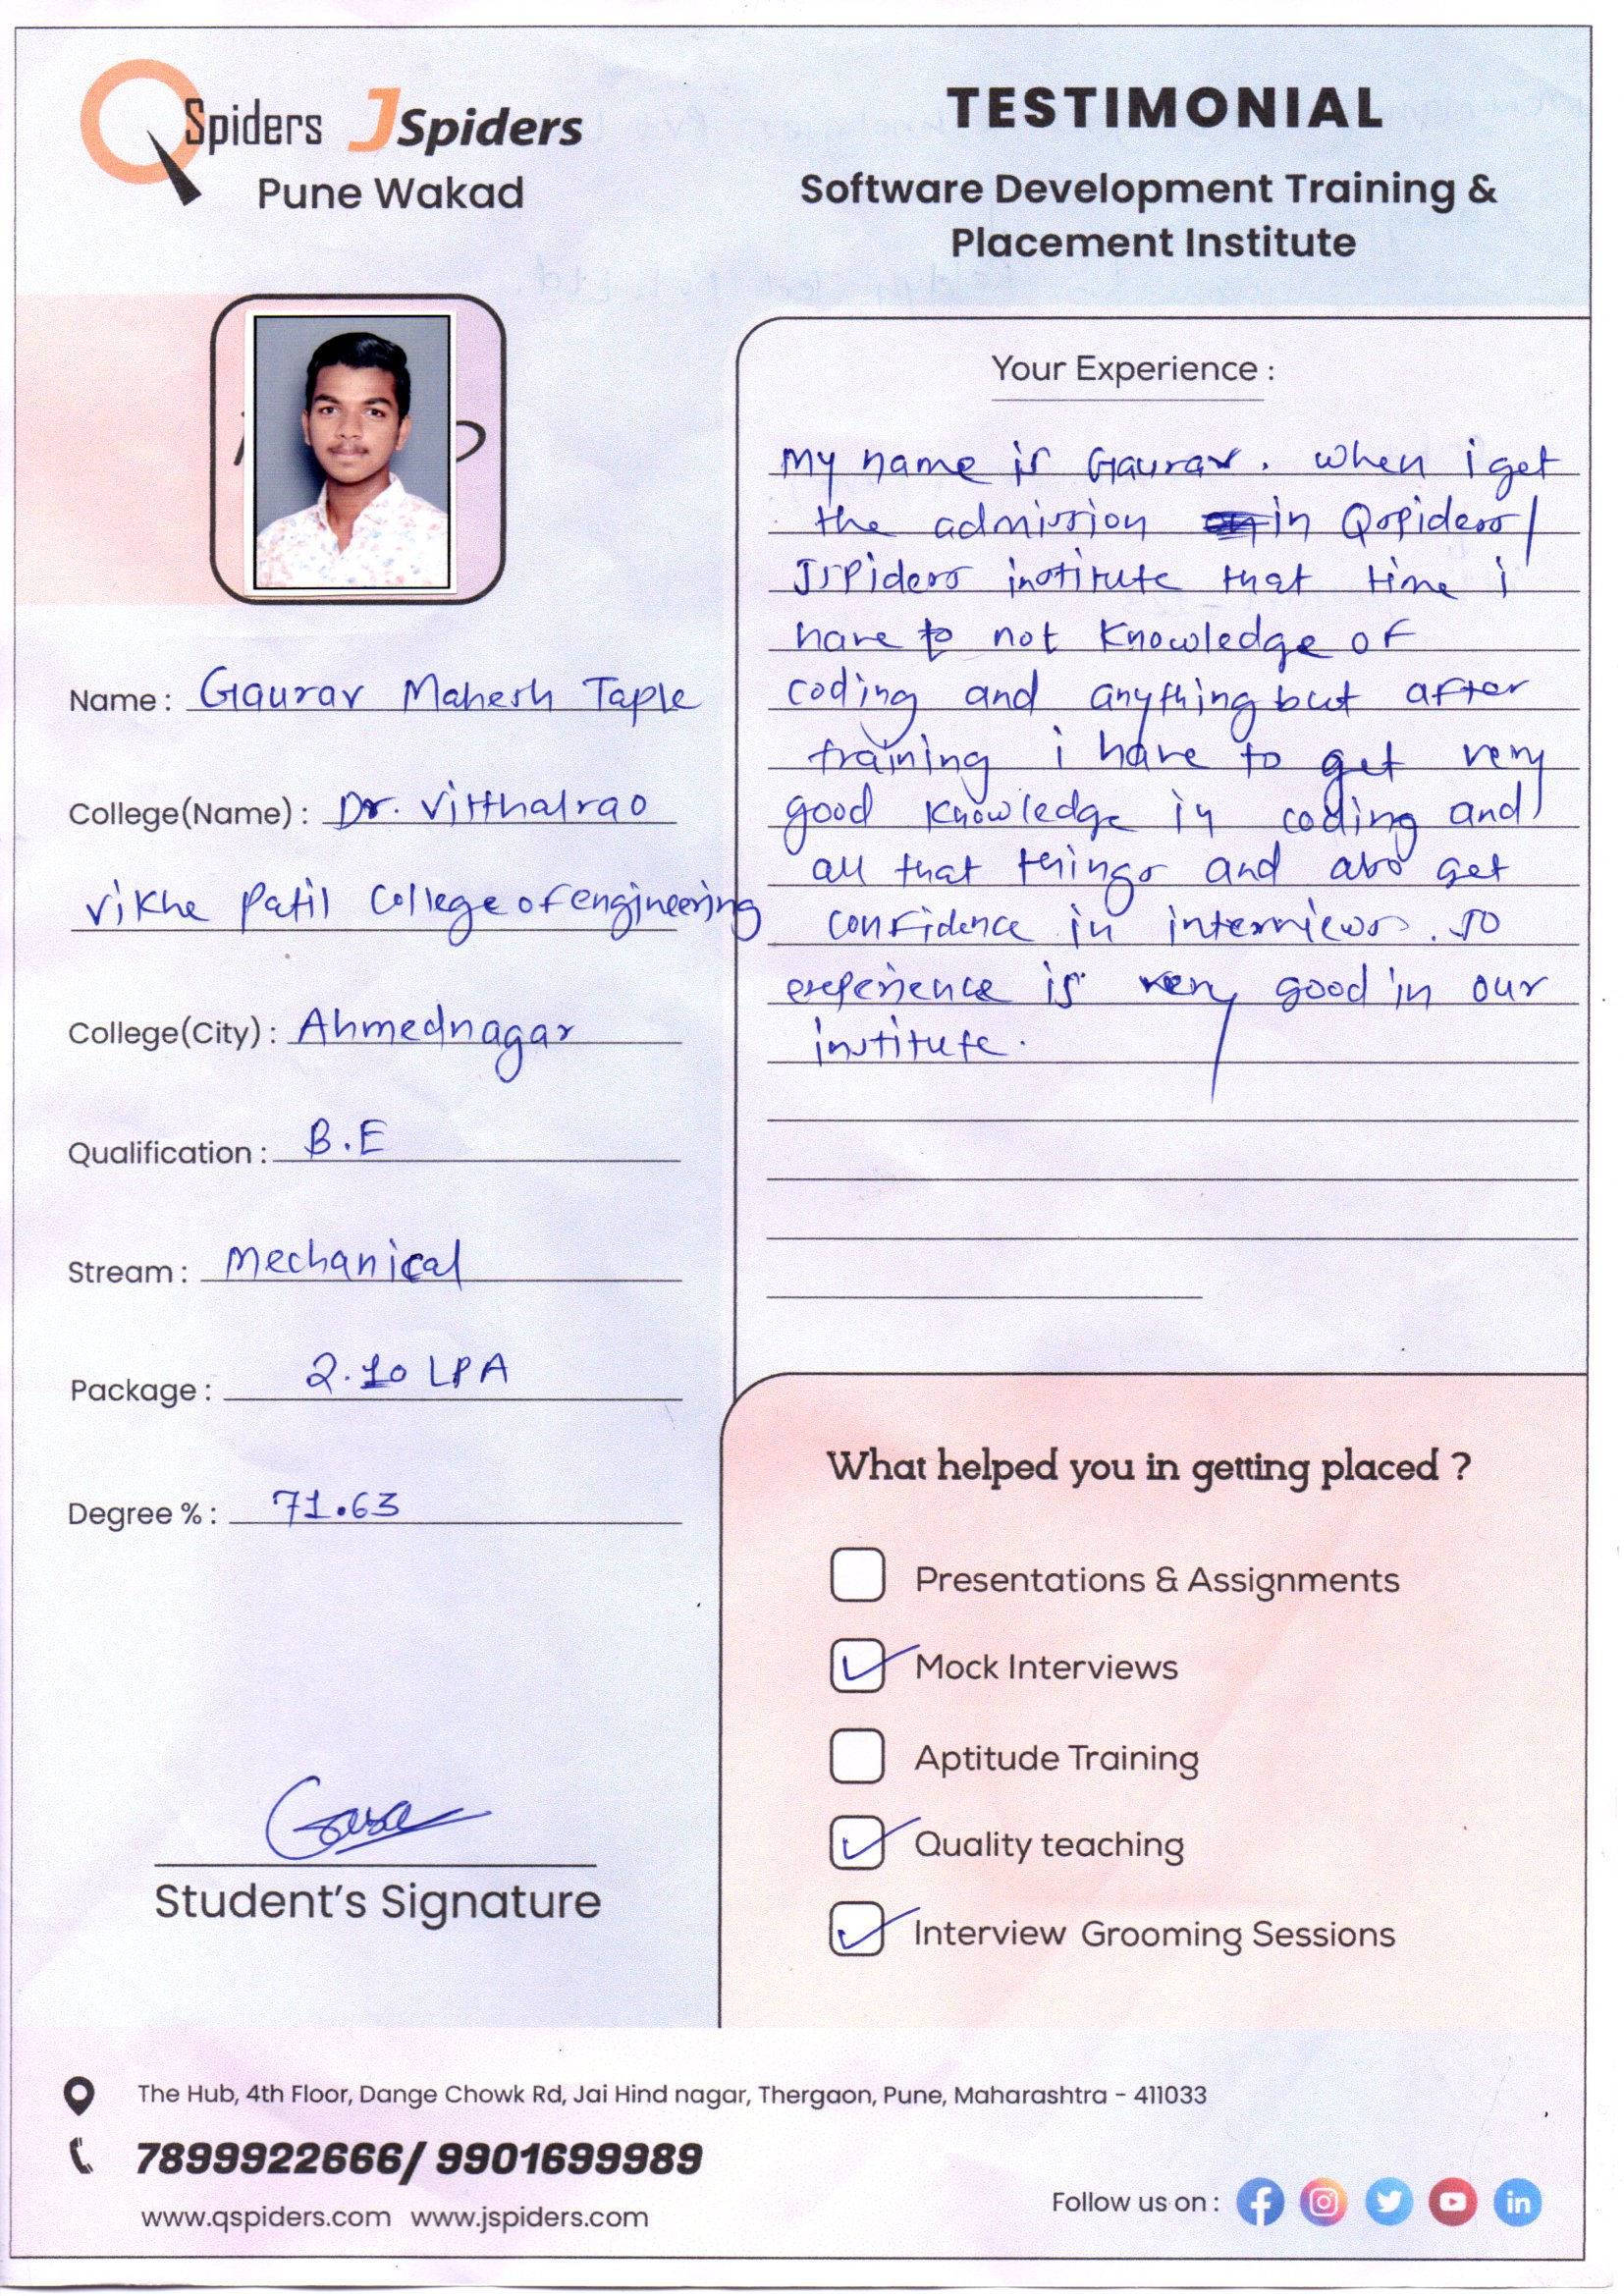 QSpiders JSpiders
Pune Wakad
TESTIMONIAL
Software Development Training &
Placement Institute
Name : Gaurav Mahesh Taple
College(Name) : Dr. Vitthalrao
vikhe Patil College of engineering
College(City) : Ahmednagar
Qualification : B.E
Stream : Mechanical
Package : 2.10 LPA
Degree % : 71.63
Student's Signature
Your Experience :
My name is Gaurav. when i get
the admission in Qspiders/
JSPiders institute that time i
have to not Knowledge of
coding and anything but after
training i have to get very
good Knowledge in coding and
all that things and also get
confidence in interviews. so
experience is very good in our
institute.
What helped you in getting placed ?
Presentations & Assignments
Mock Interviews
Aptitude Training
Quality teaching
Interview Grooming Sessions
The Hub, 4th Floor, Dange Chowk Rd, Jai Hind nagar, Thergaon, Pune, Maharashtra - 411033
7899922666/ 9901699989
www.qspiders.com www.jspiders.com
Follow us on :